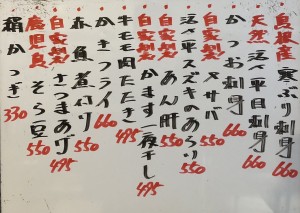 島根産 寒ぶり刺身 550
天然 活〆平目刺身 660
かつお刺身 660
自家製 〆サバ 550
活〆スズキのあらい 550
自家製 あん肝 550
自家製 かます一夜干し 495
牛モモ肉たたき 495
かきフライ 660
赤魚煮付 550
自家製 さつまあげ 495
鹿児島 そら豆 550
稲かっき 330